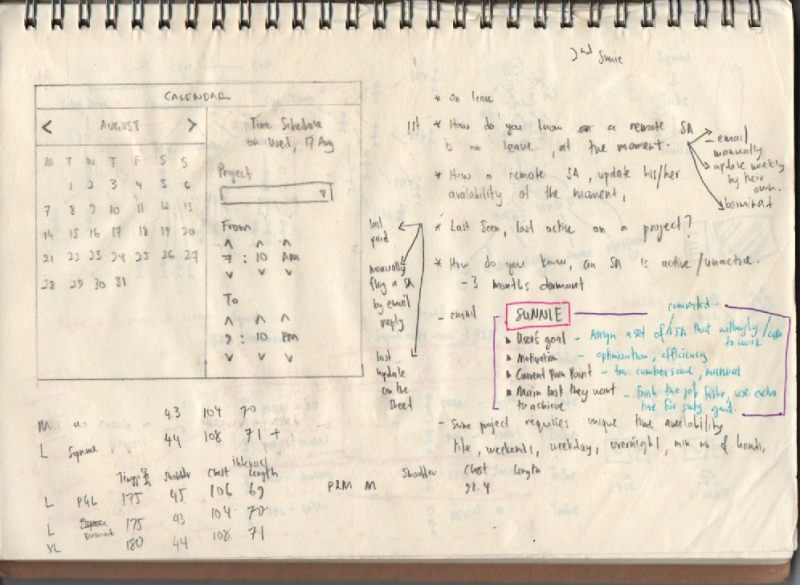 2nd Sunnie
CALENDAR
< AUGUST >
M T W T F S S
1 2 3 4 5 6
7 8 9 10 11 12 13
14 15 16 17 18 19 20
21 22 23 24 25 26 27
28 29 30 31
Time Schedule
on Wed, 17 Aug
Project
From
7 : 10 AM
To
9 : 10 PM
* On leave
1st * How do you know on a remote SA
is on leave, at the moment.
- email
manually
update weekly
by their
own.
* How a remote SA, update his/her
availability at the moment,
* Last seen, last active on a project?
last
paid
manually
flag a SA
by email
reply
last
update
on the
sheet
* How do you know, an SA is active/unactive.
- 3 months dormant
- email
SUNNIE
committed
User's goal - Assign a set of SA that willingly /
to work
Motivation - optimisation, efficiency
Current Pain Point - too cumbersome, manual
Main task they want - finish the job faster, use extra
to achieve time for
- Some project requires unique time availability
like, weekends, weekday, overnight, min no of hours,
M 43 104 70
L Square 44 108 71 +
Shoulder Chest Length
L PGL 175 45 106 69
L 175 43 104 70
XL 180 44 108 71
Shoulder Chest Length
M 91.4